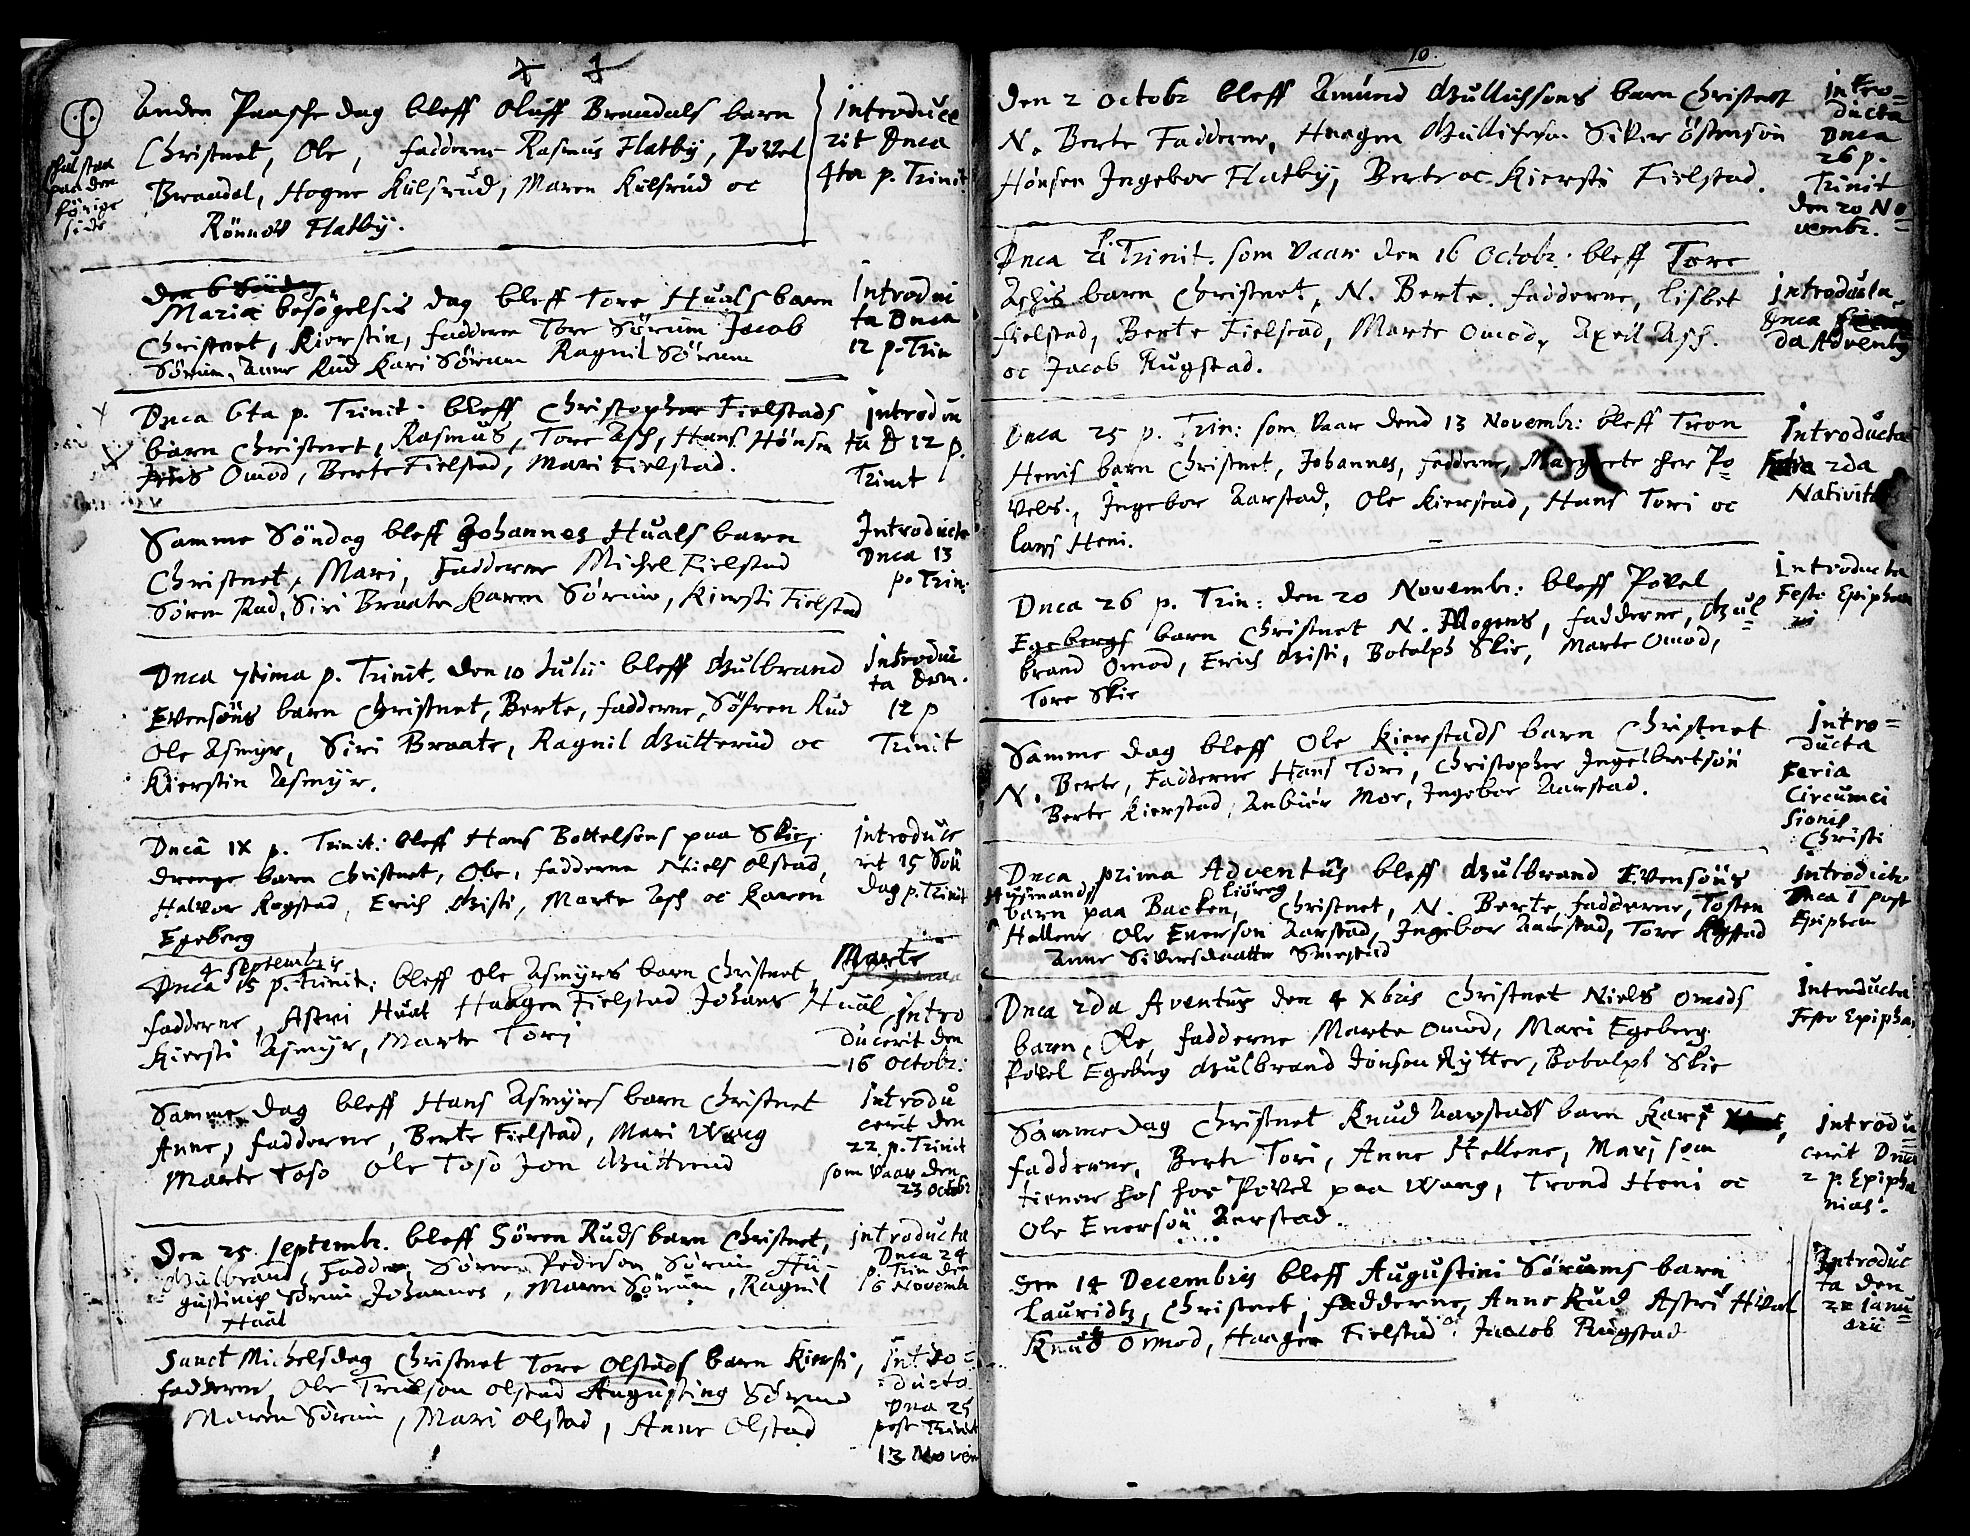 Anden Paasche dag bleff Oluff Braadals barn
Christnet, Ole, fadderne Rasmus Flatby, Povel
Braadal, Hogne Kulsrud, Maren Kulsrud oc
Rönnov Flatby.
Introduce
rit Dnca
4ta p. Trinit
skal staa
paa den
förige
side
den 6 Söndag
Mariæ besögelsis dag bleff Tore Huals barn
Christnet, Kierstin, fadderne Tore Sörum Jacob
Sörum, Anne Rud Kari Sörum Ragnil Sörum
Introduc
ta Dnca
12 p. Trin
Dnca 6ta p. Trinit. bleff Christopher Fielstads
barn Christnet, Rasmus, Tore Asch, Hans Hönsen
Omod, Berte Fielstad, Mari Fielstad.
Introdu
ta D 12 p.
Trinit
Samme Söndag bleff Johannes Huals barn
Christnet, Mari, Fadderne Michel Fielstad
Sören Rud, Siri Braate Karen Sörum, Kiersti Fielstad
Introducta
Dnca 13
p. Trin:
Dnca 7tima p. Trinit. den 10 Julii bleff Gulbrand
Evensöns barn Christnet, Berte, fadderne, Söfren Rud
Ole Asmyr, Siri Braate, Ragnil Gutterud oc
Kierstin Asmyr.
Introduc
ta Dom.
12 p
Trinit
Dnca IX p. Trinit: bleff Hans Bottelsens paa Skie,
drenge barn Christnet, Ole, fadderne Niels Olstad,
Halvor Rogstad, Erich Gisti, Marte Asch oc Karen
Egeberg
Introduce
rit 15 Sön
dag p. Trinit
4 Septembris
Dnca 15 p. Trinit: bleff Ole Asmyrs barn Christnet Marte
fadderne, Astri Hual Haagen Fielstad Johans Hual
Kiersti Asmyr, Marte Tori
Intro
ducerit den
16 Octobr:
Samme dag bleff Hans Asmyrs barn Christnet
Anne, fadderne, Berte Fielstad, Mari Wang
Marte Toso Ole Toso Jon Gutterud
Introdu
cerit den
22 p. Trinit
som vaar den
23 Octobr
Den 25 Septembr. bleff Sören Ruds barn Christnet,
Gulbrand, Fadder Sören Pederson Sörum Au-
gustinus Sörum Johannes, Maren Sörum, Ragnil
Hual
introducta
Dnca 24
p. Trin den
6 Novembr
Sanct Michelsdag Christnet Tore Olstads barn Kiersti,
fadderne, Ole Trulson Olstad Augustinus Sörum
Maren Sörum, Mari Olstad, Anne Olstad
Intro-
ducta
Dnca 25
post Trinit
13 Noven
10.
Den 2 Octobr bleff Amund Gullichsons barn Christnet
N. Berte Fadderne, Haagen Gullichson Siver Östenson
Hönsen Ingebor Flatby, Berte oc Kiersti Fielstad.
Intro-
ducta
Dnca
26 p.
Trinit
den 20 No
vembr.
Dnca 21 p Trinit. som vaar den 16 Octobr. bleff Tore
Aschis barn Christnet, N. Berte. fadderne, Lisbet
Fielstad, Berte Fielstad, Marte Omod, Axel Asch.
oc Jacob Rugstad.
Introducta
Dnca
da Adventus
Dnca 25 p. Trin: som vaar dend 13 Novembr: bleff Tron
Henis barn Christnet, Johannes, fadderne, Margrete her Po
vels., Ingebor Aarstad, Ole Kierstad, Hans Tori oc
Lars Heni.
Introducta
Feria 2da
Nativit
Dnca 26 p. Trin: den 20 Novembr: bleff Povel
Egebergs barn Christnet N. Mogens, fadderne, Gul
brand Omod, Erich Gisti, Botolph Skie, Marte Omod,
Tore Skie
Introducta
Fest: Epipha
ni
Samme dag bleff Ole Kierstads barn Christnet
N. Berte, Fadderne Hans Tori, Christopher Ingelbretsön
Berte Kierstad, Anbiör Moe, Ingebor Aarstad.
Intro-
ducta
Feria
Circumci
sionis
Christi
Dnca prima Adventus bleff Gulbrand Evensöns
Huusmands barn paa Backen, Christnet, N. Berte, fadderne, Tosten
Hellene Ole Enerson Aarstad, Ingebor Aarstad, Tore Rogstad
Anne Siversdaatter Smestad
Introducta
Dnca 1 post
Epiphan
Dnca 2da Aventus den 4 Xbris Christnet Niels Omods
barn, Ole, fadderne Marte Omod, Mari Egeberg
Povel Egeberg Gulbrand Jonson Rytter, Botolph Skie
Introducta
Festo Epipha.
Samme dag Christnet Knud Aarstads barn Kari
fadderne, Berte Tori, Anne Hellene, Mari som
tiener hos hos Povel paa Wang, Trond Heni oc
Ole Enersön Aarstad.
Introdu
cerit Dnca
2 p. Epipha
nias.
Den 14 Decembris bleff Augustini Sörums barn
Lauridtz, Christnet, fadderne, Anne Rud Astri Hual
Knud Omod, Haagen Fielstad oc Jacob Rugstad
Introduc
ta den
22 Janu
arii